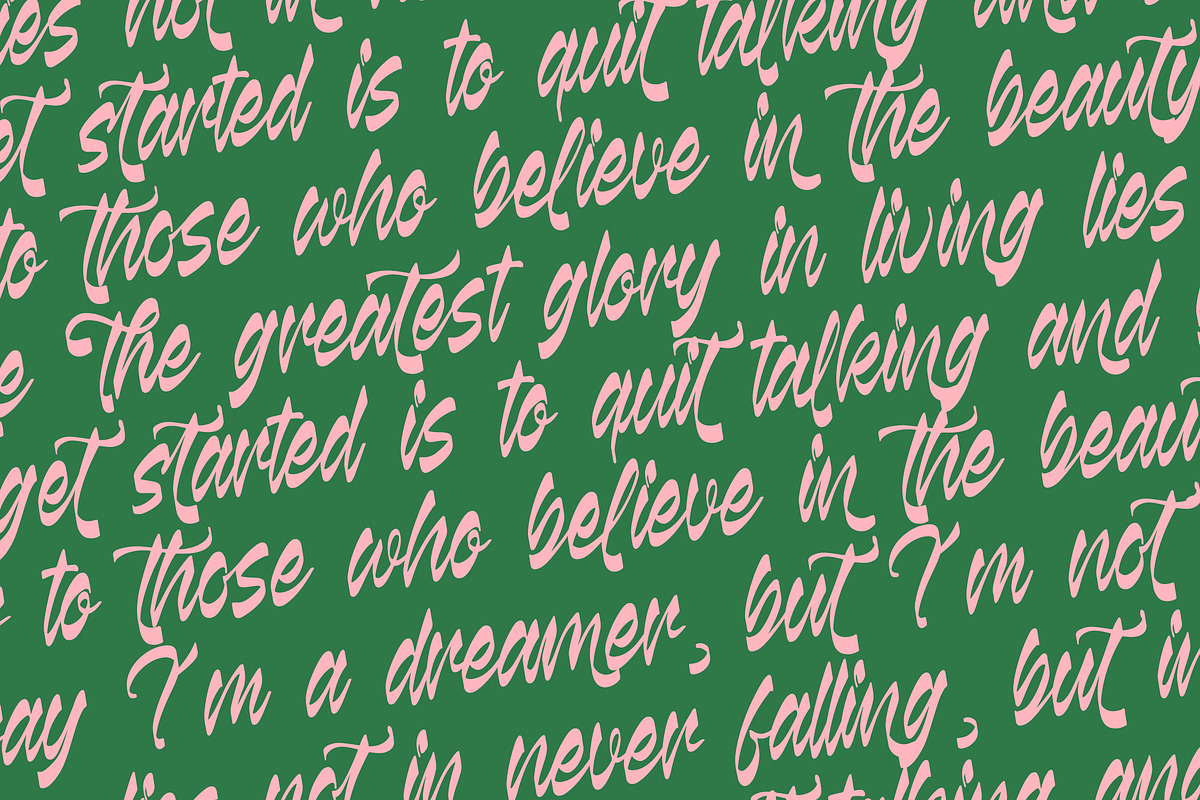 lies not in n
get started is to quit talking and
to those who believe in the beauty
The greatest glory in living lies
get started is to quit talking and
to those who believe in the beau
say I'm a dreamer, but I'm not
lies not in never falling, but in
talking and